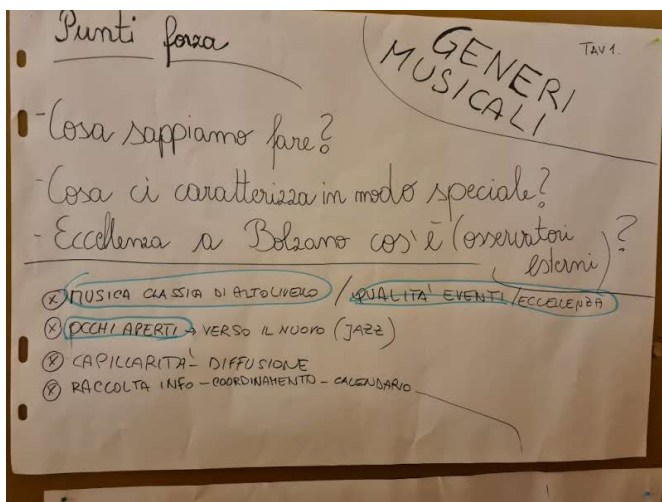 Punti forza
GENERI
MUSICALI
TAV 1.
- Cosa sappiamo fare?
- Cosa ci caratterizza in modo speciale?
- Eccellenza a Bolzano cos'è (osservatori
esterni)?
MUSICA CLASSICA DI ALTO LIVELLO / QUALITA' EVENTI / ECCELLENZA
OCCHI APERTI → VERSO IL NUOVO (JAZZ)
CAPILLARITA' - DIFFUSIONE
RACCOLTA INFO - COORDINAMENTO - CALENDARIO